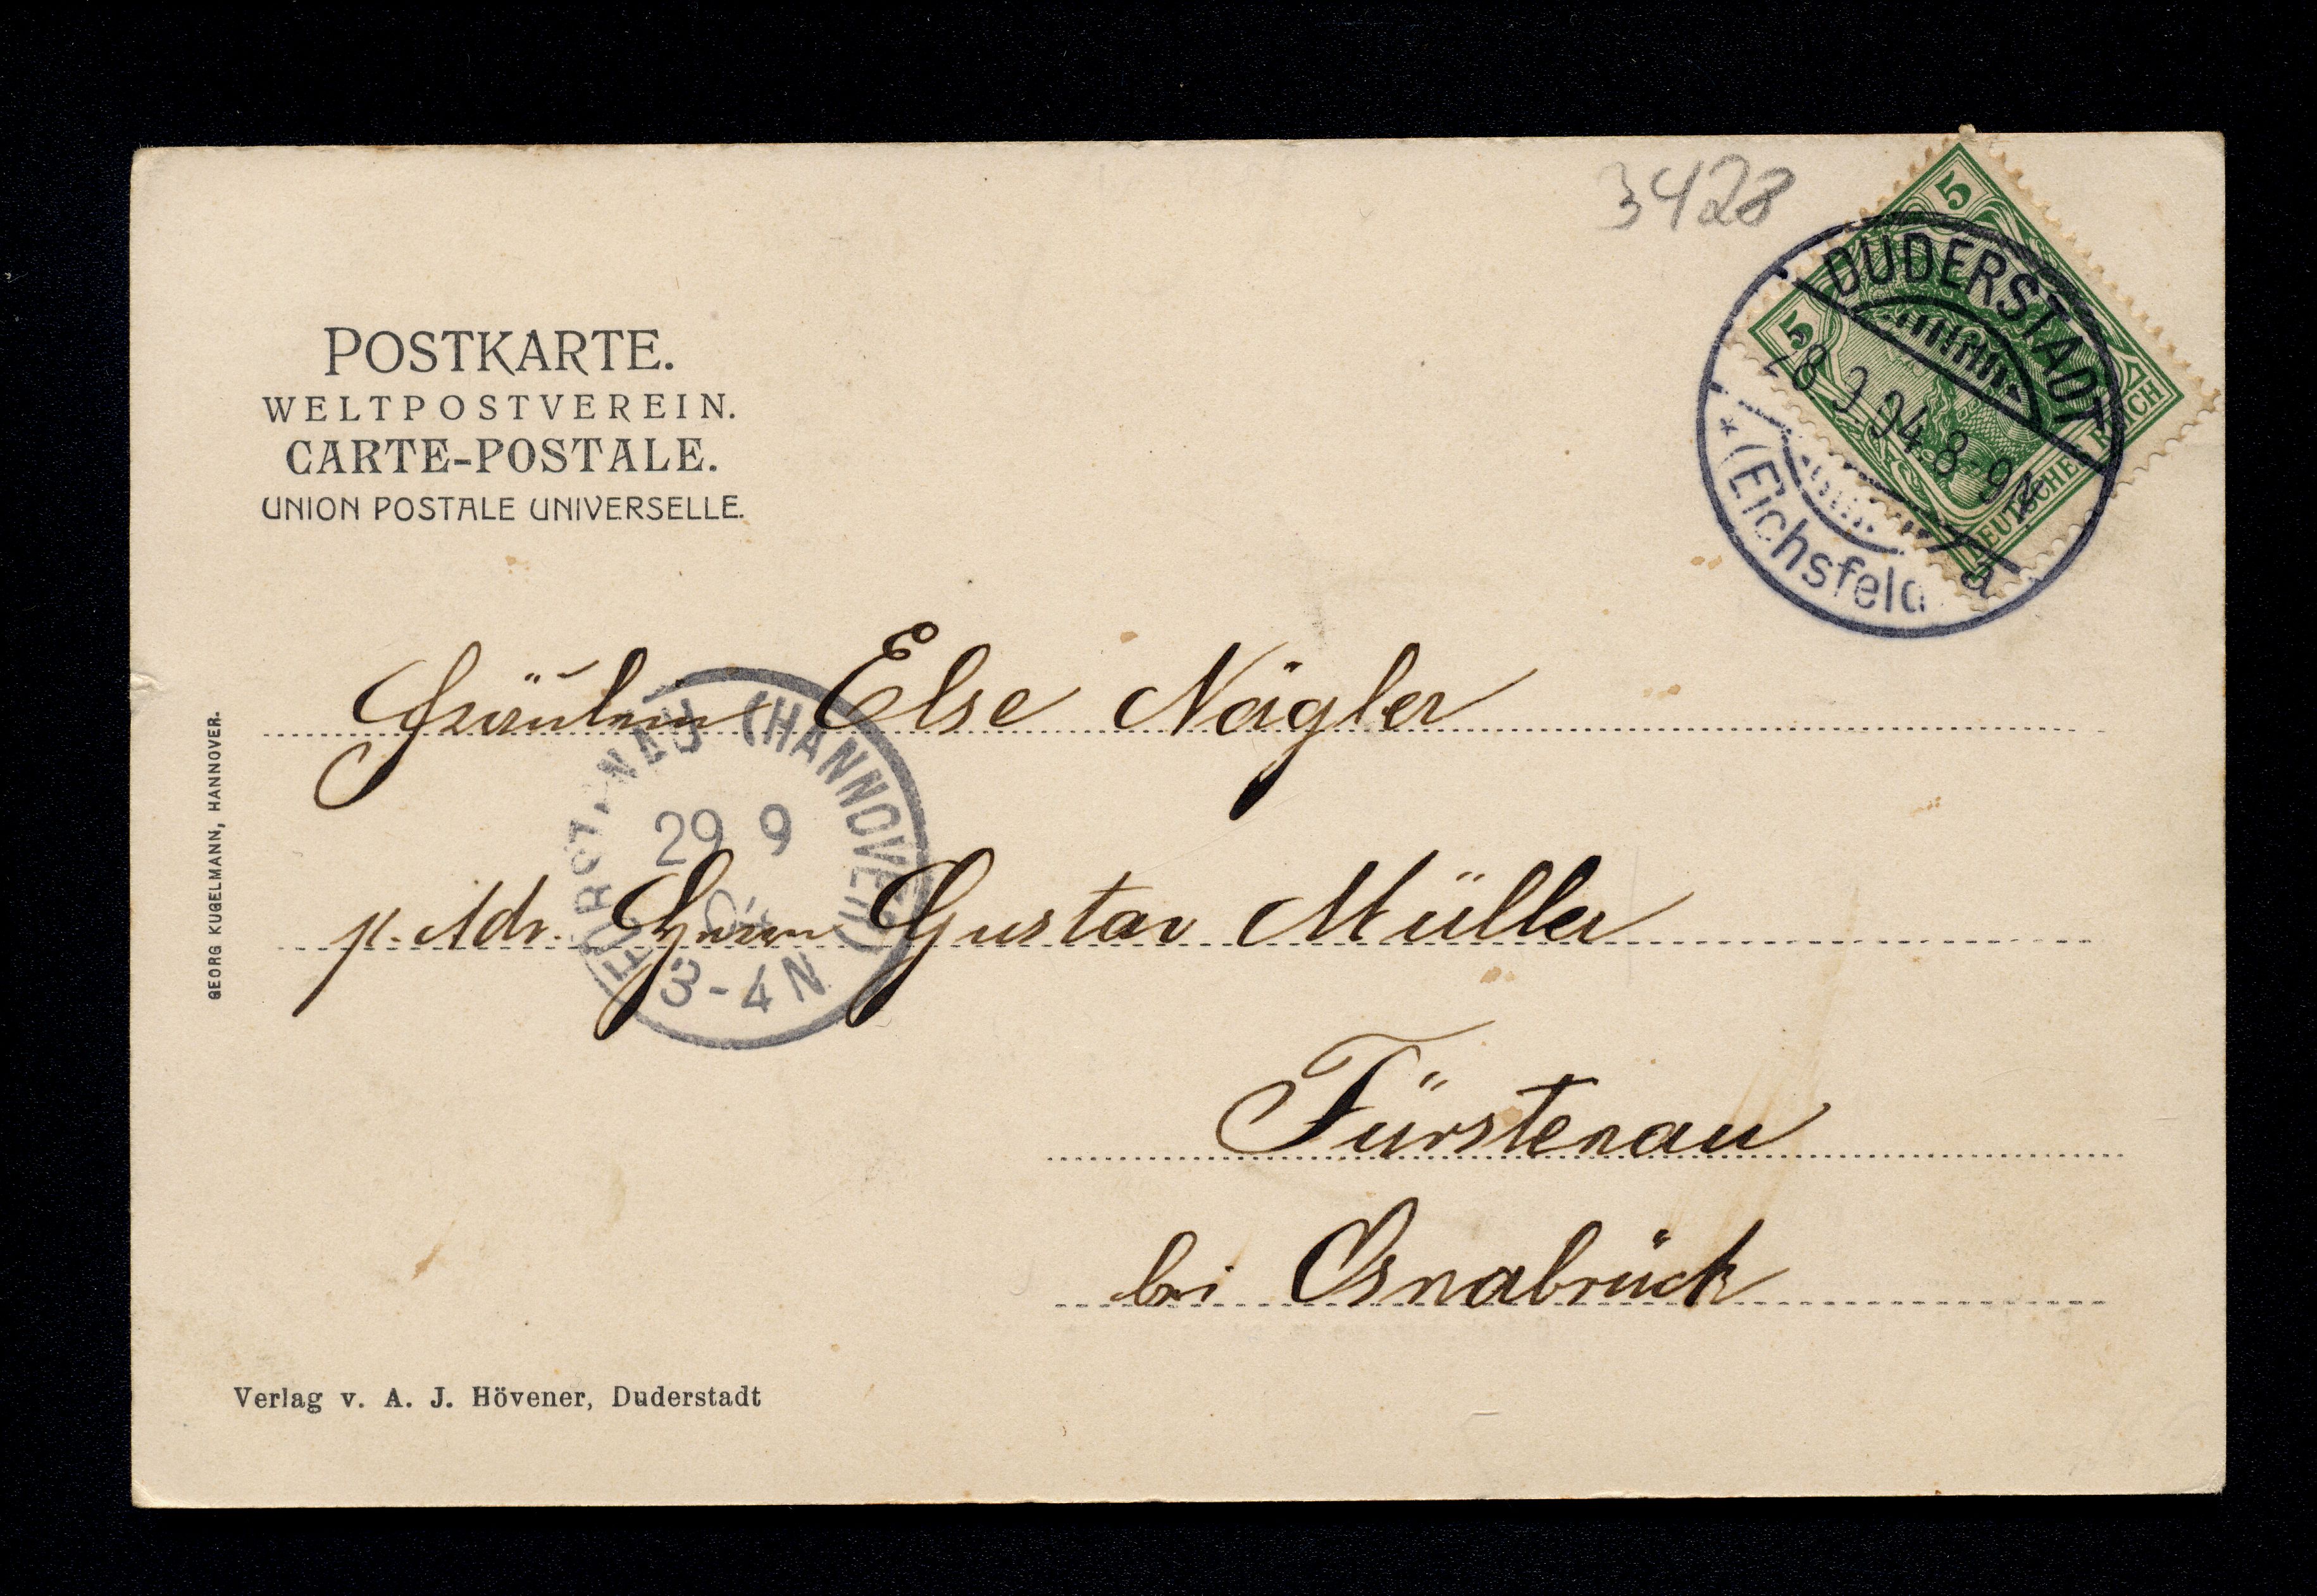 3428
5
5
DEUTSCHES REICH
DUDERSTADT
28 9 04 8-9N
* (Eichsfeld) a
POSTKARTE.
WELTPOSTVEREIN.
CARTE-POSTALE.
UNION POSTALE UNIVERSELLE.
Fräulein Else Nägler
FÜRSTENAU (HANNOVER)
29 9
3-4N
p. Adr. Herrn Gustav Müller
Fürstenau
bei Osnabrück
GEORG KUGELMANN, HANNOVER.
Verlag v. A. J. Hövener, Duderstadt